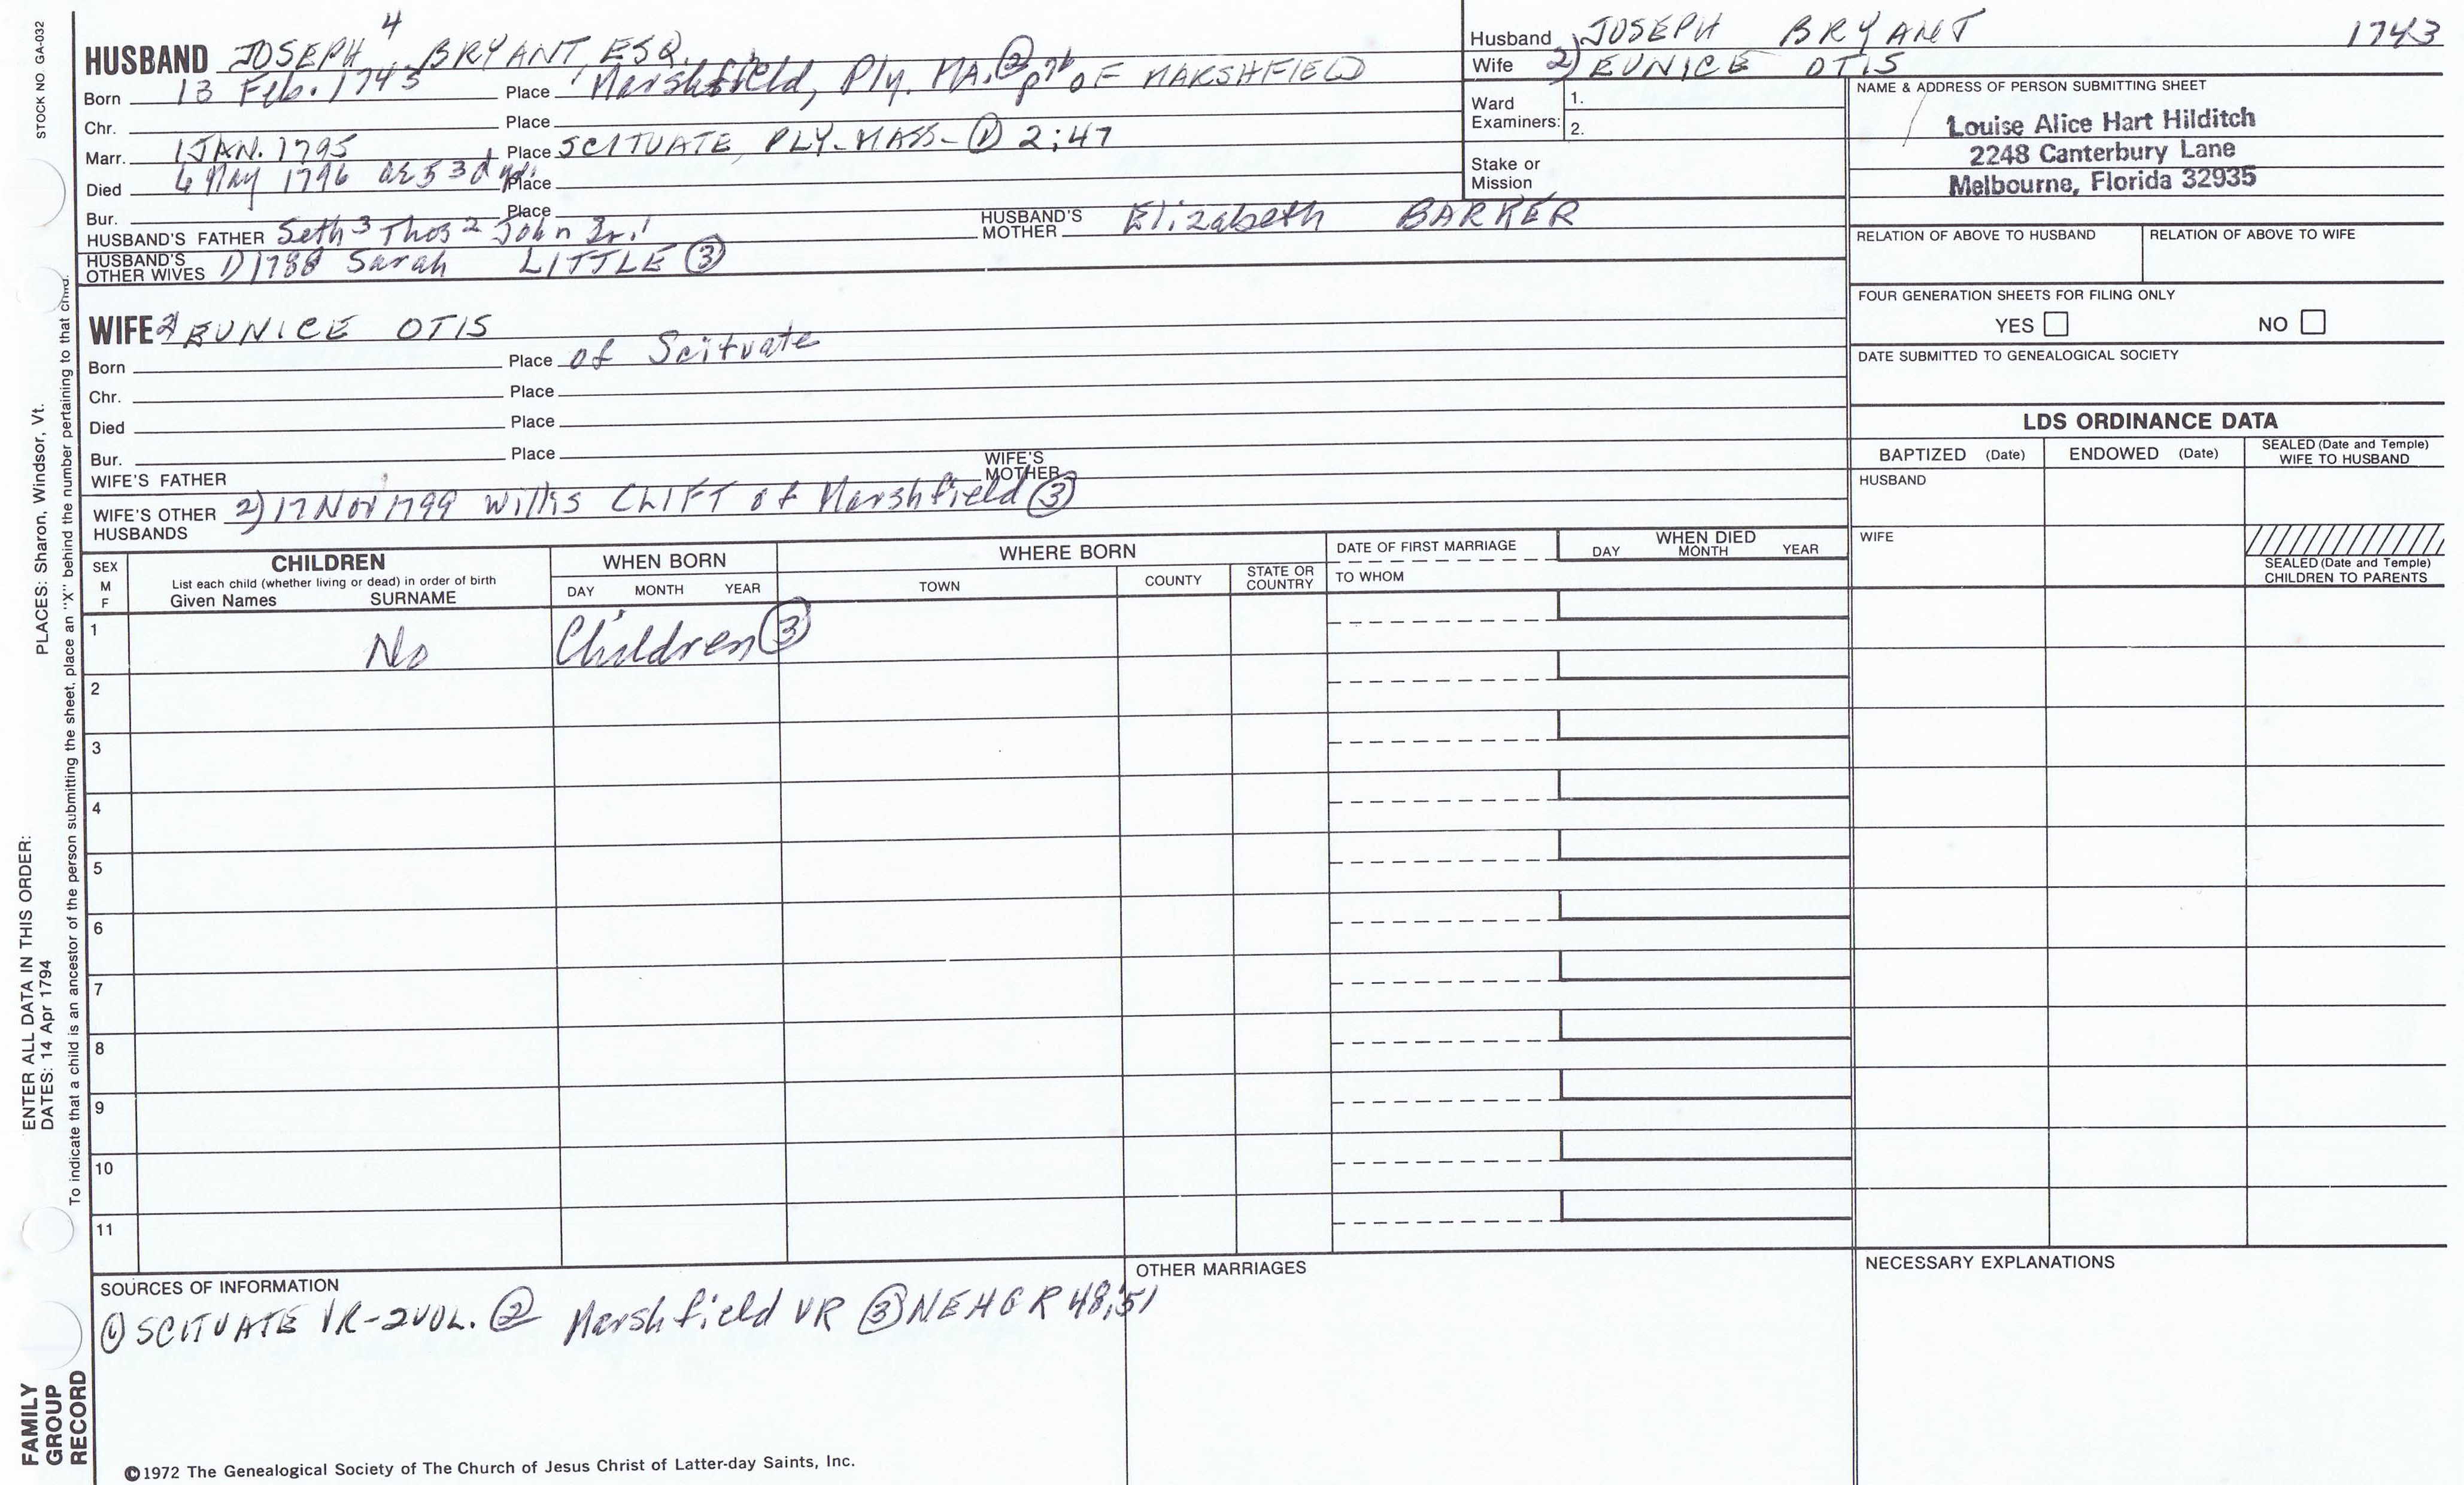 STOCK NO. GA-032
PLACES: Sharon, Windsor, Vt.
ENTER ALL DATA IN THIS ORDER:
DATES: 14 Apr 1794
To indicate that a child is an ancestor of the person submitting the sheet, place an "X" behind the number pertaining to that child.
FAMILY GROUP RECORD
HUSBAND JOSEPH 4 BRYANT, ESQ.
Born 13 Feb. 1743 Place Marshfield, Ply. MA. ② OF MARSHFIELD
Chr. Place
Marr. 1 JAN. 1795 Place SCITUATE, PLY. MASS - ① 2:47
Died 6 May 1796 ae 53 d Place
Bur. Place
HUSBAND'S FATHER Seth 3 Thos 2 John Sr. 1 HUSBAND'S MOTHER Elizabeth BARKER
HUSBAND'S OTHER WIVES 1) 1788 Sarah LITTLE ③
WIFE 2) EUNICE OTIS
Born Place of Scituate
Chr. Place
Died Place
Bur. Place
WIFE'S FATHER WIFE'S MOTHER
WIFE'S OTHER HUSBANDS 2) 17 Nov 1799 Willis CLIFT of Marshfield ③
Husband JOSEPH BRYANT 1743
Wife 2) EUNICE OTIS
Ward Examiners: 1.
2.
Stake or Mission
NAME & ADDRESS OF PERSON SUBMITTING SHEET
Louise Alice Hart Hilditch
2248 Canterbury Lane
Melbourne, Florida 32935
RELATION OF ABOVE TO HUSBAND RELATION OF ABOVE TO WIFE
FOUR GENERATION SHEETS FOR FILING ONLY
YES NO
DATE SUBMITTED TO GENEALOGICAL SOCIETY
LDS ORDINANCE DATA
BAPTIZED (Date) ENDOWED (Date) SEALED (Date and Temple) WIFE TO HUSBAND
HUSBAND
WIFE
SEALED (Date and Temple) CHILDREN TO PARENTS
SEX M F
CHILDREN
List each child (whether living or dead) in order of birth
Given Names SURNAME
WHEN BORN
DAY MONTH YEAR
WHERE BORN
TOWN COUNTY STATE OR COUNTRY
DATE OF FIRST MARRIAGE
TO WHOM
WHEN DIED
DAY MONTH YEAR
1 No Children ③
2
3
4
5
6
7
8
9
10
11
SOURCES OF INFORMATION
① SCITUATE VR - 2 VOL. ② Marshfield VR ③ NEHGR 48:51
OTHER MARRIAGES
NECESSARY EXPLANATIONS
©1972 The Genealogical Society of The Church of Jesus Christ of Latter-day Saints, Inc.